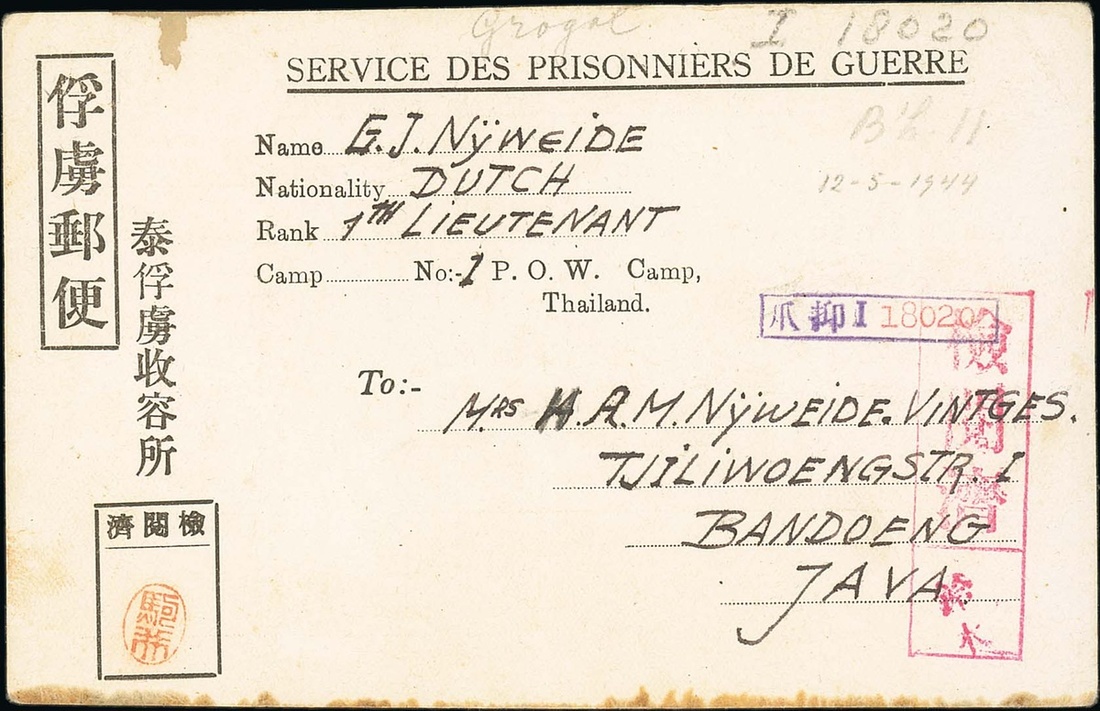 Grogol.
I 18020
SERVICE DES PRISONNIERS DE GUERRE
俘虜郵便
泰俘虜收容所
Name G. J. NŸWEIDE
Nationality DUTCH
Rank 1TH LIEUTENANT
Camp No:-1 P. O. W. Camp,
Thailand.
12-5-1944
爪抑I 18020
To:-
MRS H. A. M. NŸWEIDE. VINTGES.
TJILIWOENGSTR. I
BANDOENG
JAVA
檢閲濟
檢閲濟
鈴木